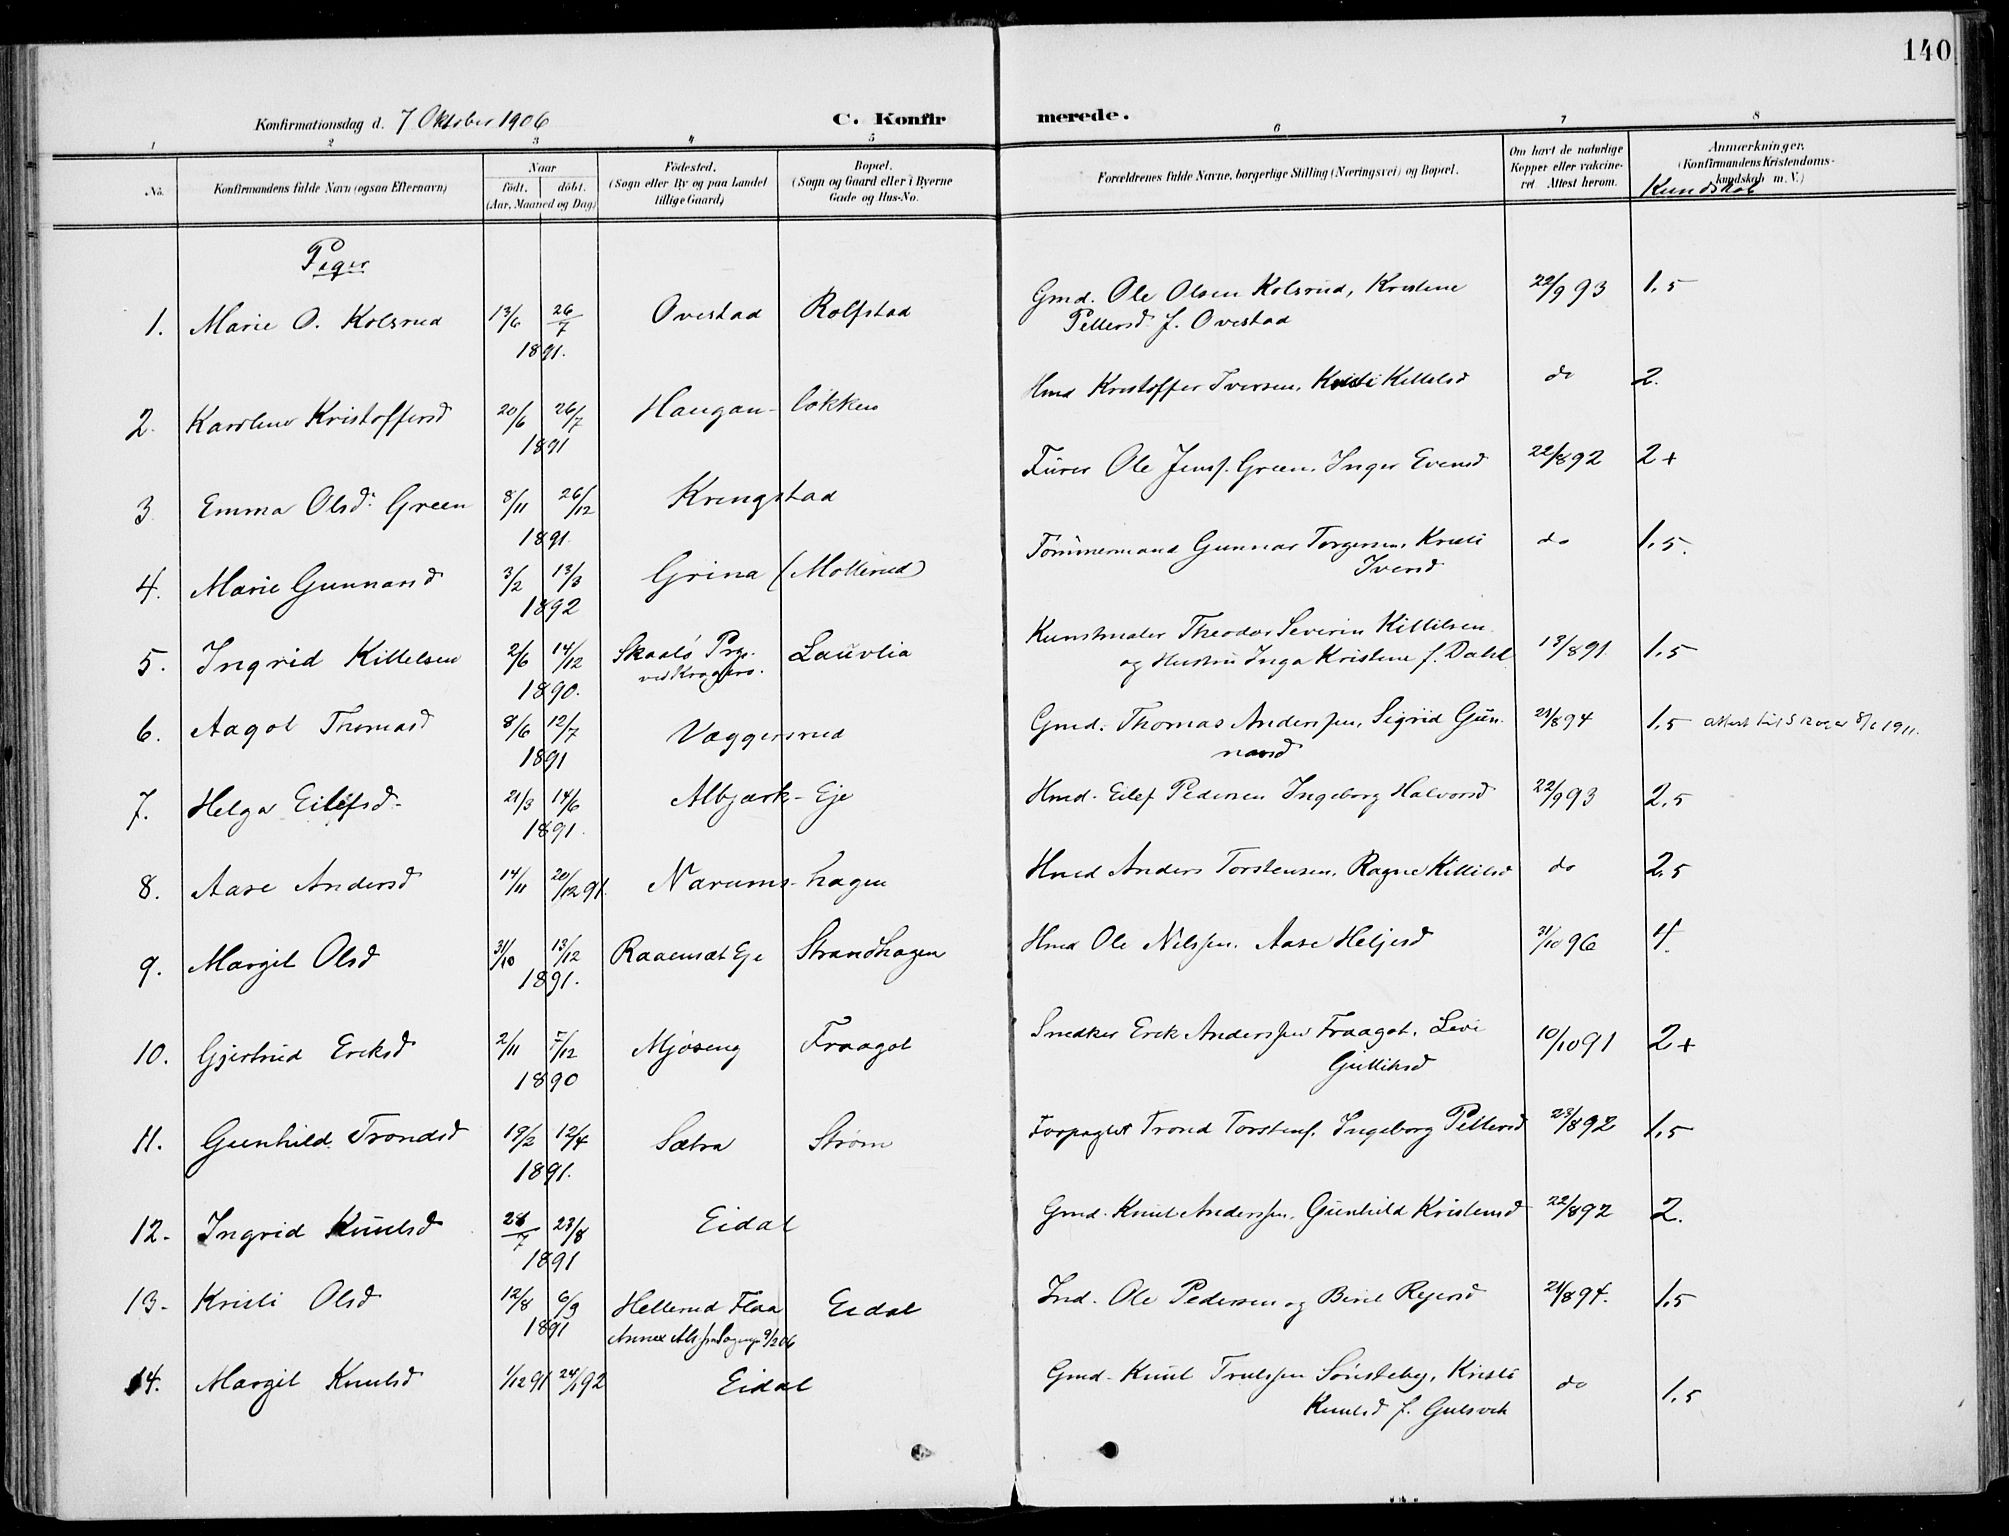 140
Konfirmationsdag d. 7 Oktober 1906
C. Konfirmerede.
1 2 3 4 5 6 7 8
No.
Konfirmandens fulde Navn (ogsaa Efternavn)
Naar
födt. döbt.
(Aar, Maaned og Dag)
Födested.
(Sogn eller By og paa Landet
tillige Gaard)
Bopæl.
(Sogn og Gaard eller i Byerne
Gade og Hus-No.
Forældrenes fulde Navne, borgerlige Stilling (Næringsvei) og Bopæl.
Om havt de naturlige
Kopper eller vakcine-
ret. Attest herom.
Anmærkninger.
(Konfirmandens Kristendoms-
kundskab m. V.)
Kundskab
Piger
1. Marie O. Kolsrud 13/6 26/7 Ovestad Rolfstad Gmd. Ole Olsen Kolsrud, Kristene 22/9 93 1.5
1891. Pettersd. f. Ovestad
2. Karoline Kristoffersd 20/6 26/7 Haugan- lökken Hmd Kristoffer Iversen, Kristi Kittelsd do 2.
1891
3 Emma Olsd. Green 8/11 26/12 Kringstad Furer Ole Jensf. Green. Inger Evensd 22/8 92 2+
1891
4. Marie Gunnarsd 3/2 13/3 Grina (Mollerud) Tömmermand Gunnar Torgersen, Kristi do 1.5.
1892 Iversd
5. Ingrid Kittelsen 2/6 14/12 Skaatö Prgj. Lauvlia Kunstmaler Theodor Severin Kittilsen 13/8 91 1.5
1890. ved Kragerö. og Hustru Inga Kristine f. Dahl
6. Aagot Thomasd 8/6 12/7 Væggersrud Gmd. Thomas Anderssen, Sigrid Gun- 21/8 94 1.5
1891 narsd
7. Helga Eilefsd- 21/3 14/6 Albjærk- Eje Hmd- Eilef Pedersen Ingeborg Halvorsd 22/9 93 2.5
1891.
8. Aase Andersd 14/11 20/12 91. Narums- hagen Hmd Anders Torstensen. Ragne Kittilsd do 2.5
9. Margit Olsd 31/10 13/12 Raaemsæt Eje Strandhagen Hmd Ole Nelssen. Aase Heljesd 31/10 96 4.
1891.
10. Gjertrud Eriksd 2/11 7/12 Mjøseng Fraagot Snedker Erik Anderssen Fraagot. Levi 10/10 91 2+
1890 Gulliksd
11. Gunhild Trondsd 19/2 12/4 Sætra Ström Forpagter Trond Torstenf. Ingeborg Pettersd 23/8 92 1.5
1891.
12. Ingrid Knutsd 28/7 23/8 Eidal Gmd. Knut Anderssen. Gunhild Kristensd 22/8 92 2.
1891
13- Kristi Olsd 12/8 6/9 Hellerud Flaa Eidal Ind. Ole Pedersen og Birit Rejersd 21/8 94. 1.5
1891 Annex
14. Margit Knutsd 1/12 91 24/1 92 Eidal Gmd- Knut Trulssen Sönsteby, Kristi do 1.5
Knutsd f. Gulsvik